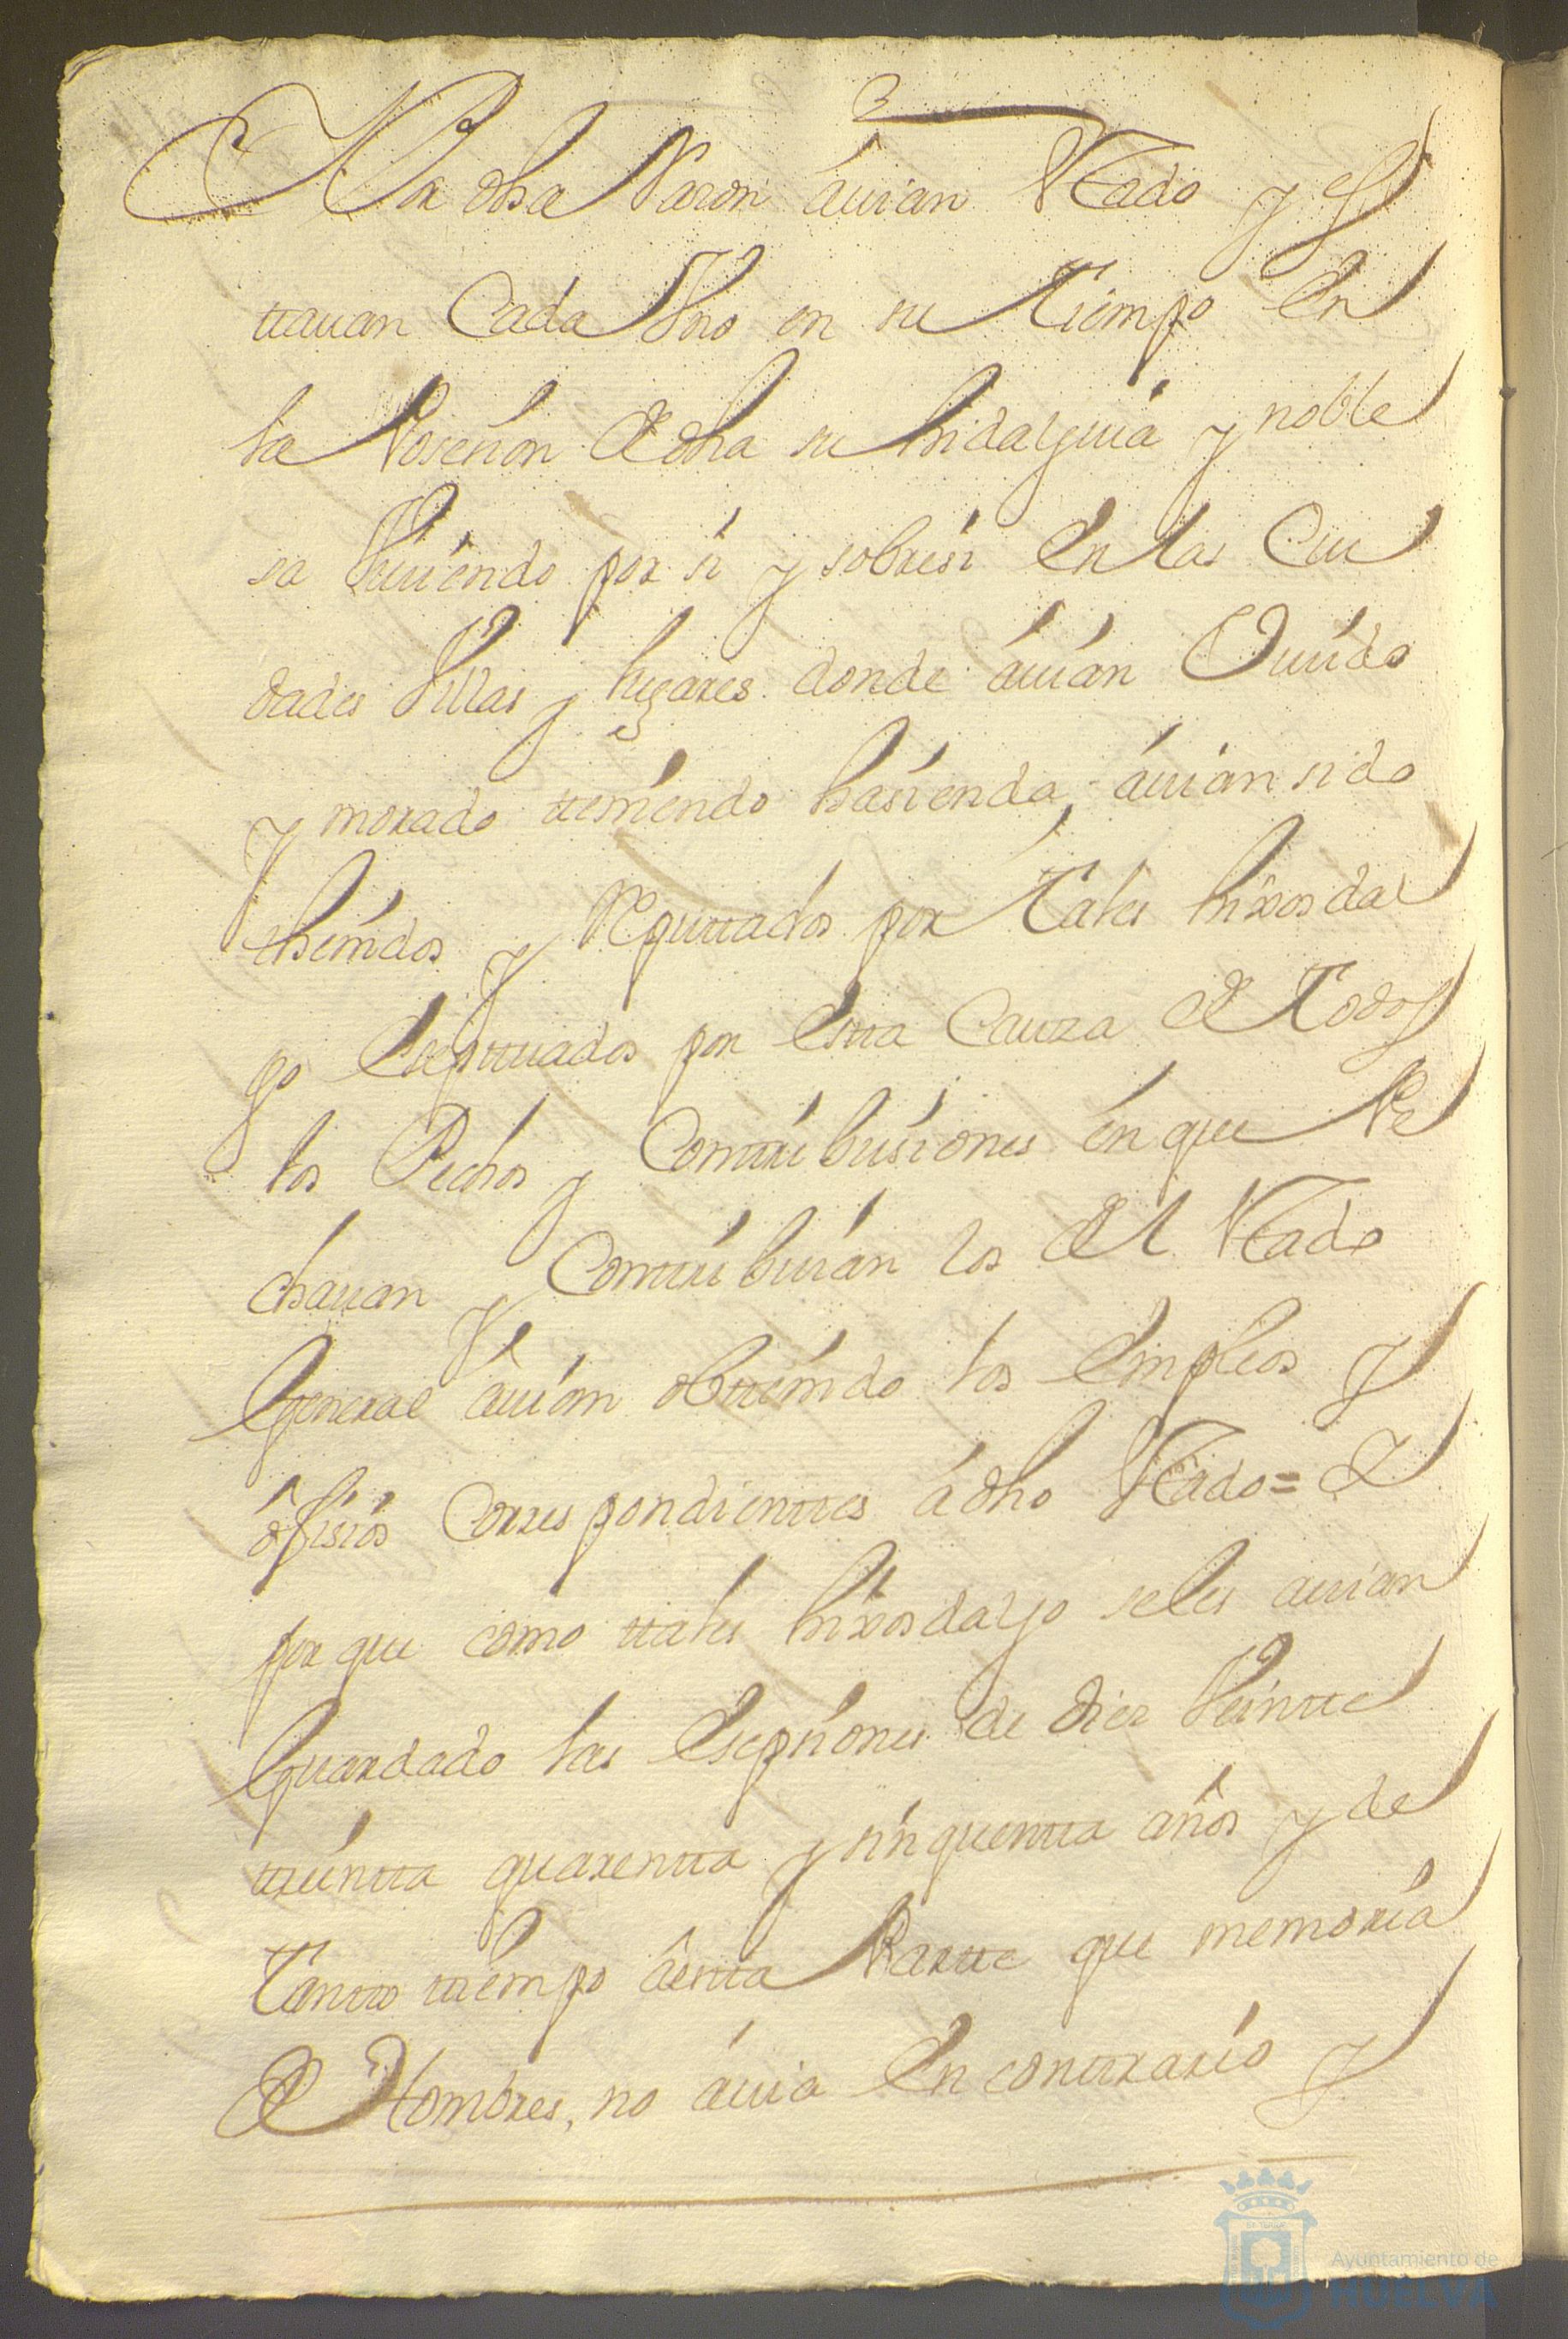 Por dha Varon auian Estado y es
ttauan Cada Vno en su Tiempo En
la Posesion de dha su hidalguia y noble
sa Viuiendo por si y sobresi En las Ciu
dades Villas y lugares donde auian Viuido
y morado tteniendo hasienda, auian sido
thenidos y Reputtados por Tales hixosdal
go Eseptuados por Estta Cauza de Todos
los Pechos y Conttribusiones en que Pe
chauan y Conttribuian los del Estado
General auian obttenido los Empleos y
ofisios Correspondienttes a dho Estado = Y
por que como ttales hixosdalgo seles auian
Guardado las Esepsiones de diez Veintte
ttreintta quarentta y sinquentta años y de
Tantto ttiempo aestta Partte que memoria
de Hombres, no auia En conttrario y
Ayuntamiento de
HUELVA